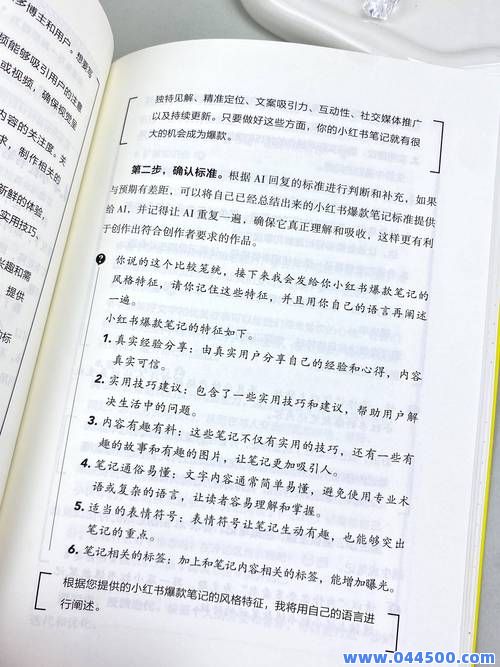 多博主和用户。想要写
频能够吸引用户的注意
或视频，确保视觉呈
内容的关注度。关
求，制作相关的
新鲜的体验，
实用技巧、
兴趣和需
提供
的标
独特见解、精准定位、文案吸引力、互动性、社交媒体推广
以及持续更新。只要做好这些方面，你的小红书笔记就有很
大的机会成为爆款。
第二步，确认标准。根据 AI 回复的标准进行判断和补充，如果
与预期有差距，可以将自己已经总结出来的小红书爆款笔记标准提供
给 AI，并记得让 AI 重复一遍，确保它真正理解和吸收，这样更有利
于创作出符合创作者要求的作品。
你说的这个比较笼统，接下来我会发给你小红书爆款笔记的
风格特征，请你记住这些特征，并且用你自己的语言再阐述
一遍。
小红书爆款笔记的特征如下。
1. 真实经验分享：由真实用户分享自己的经验和心得，内容
真实可信。
2. 实用技巧建议：包含了一些实用技巧和建议，帮助用户解
决生活中的问题。
3. 内容有趣有料：这些笔记不仅有实用的技巧，还有一些有
趣的故事和有趣的图片，让笔记更加吸引人。
4. 笔记通俗易懂：文字内容通常简单易懂，避免使用专业术
语或复杂的语言，让读者容易理解和掌握。
5. 适当的表情符号：表情符号让笔记生动有趣，也能够突出
笔记的重点。
6. 笔记相关的标签：加上和笔记内容相关的标签，能增加曝光。
根据您提供的小红书爆款笔记的风格特征，我将用自己的语言进
行阐述。
www.044500.com